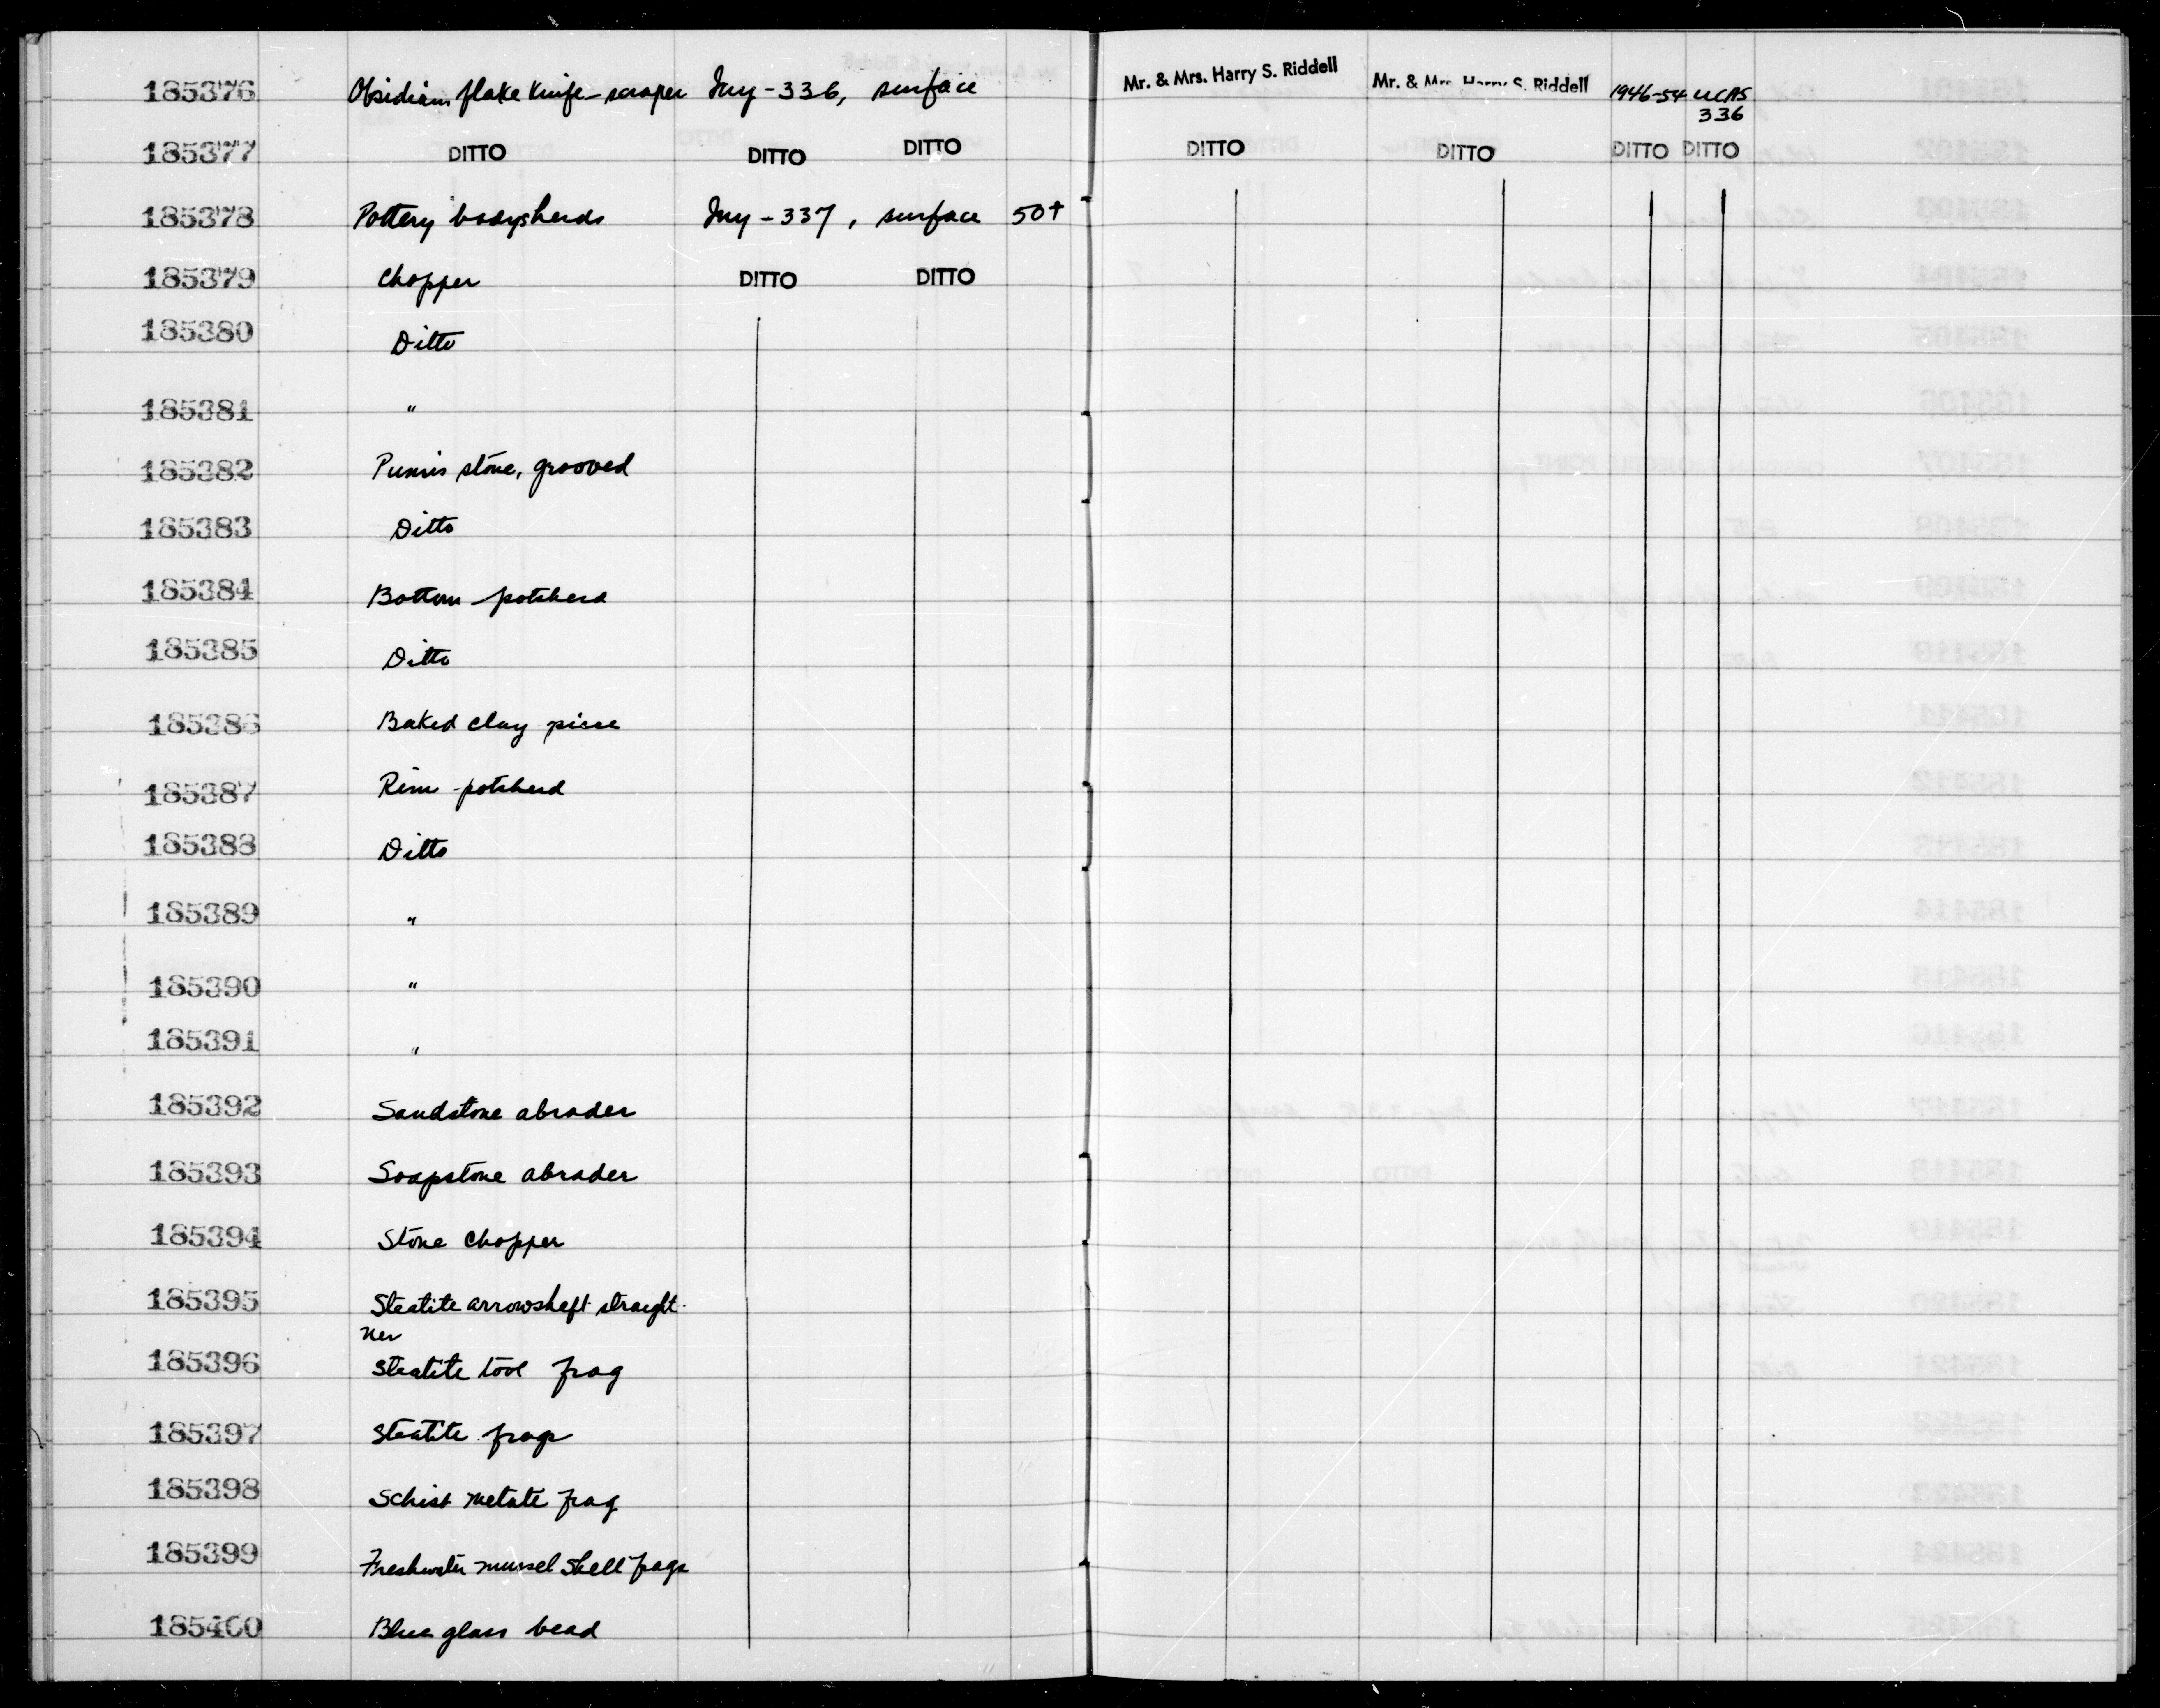 185376 Obsidian flake knife-scraper Iny-336, surface Mr. & Mrs. Harry S. Riddell Mr. & Mrs. Harry S. Riddell 1946-54 UCAS
336
185377 DITTO DITTO DITTO DITTO DITTO DITTO DITTO
185378 Pottery bodysherds Iny-337, surface 50+
185379 Chopper DITTO DITTO
185380 Ditto
185381 "
185382 Pumis stone, grooved
185383 Ditto
185384 Bottom potsherd
185385 Ditto
185386 Baked clay piece
185387 Rim potsherd
185388 Ditto
185389 "
185390 "
185391 "
185392 Sandstone abrader
185393 Soapstone abrader
185394 Stone chopper
185395 Steatite arrowshaft straight-
ner
185396 Steatite tool frag
185397 Steatite frags
185398 Schist metate frag
185399 Freshwater mussel shell frags
185400 Blue glass bead